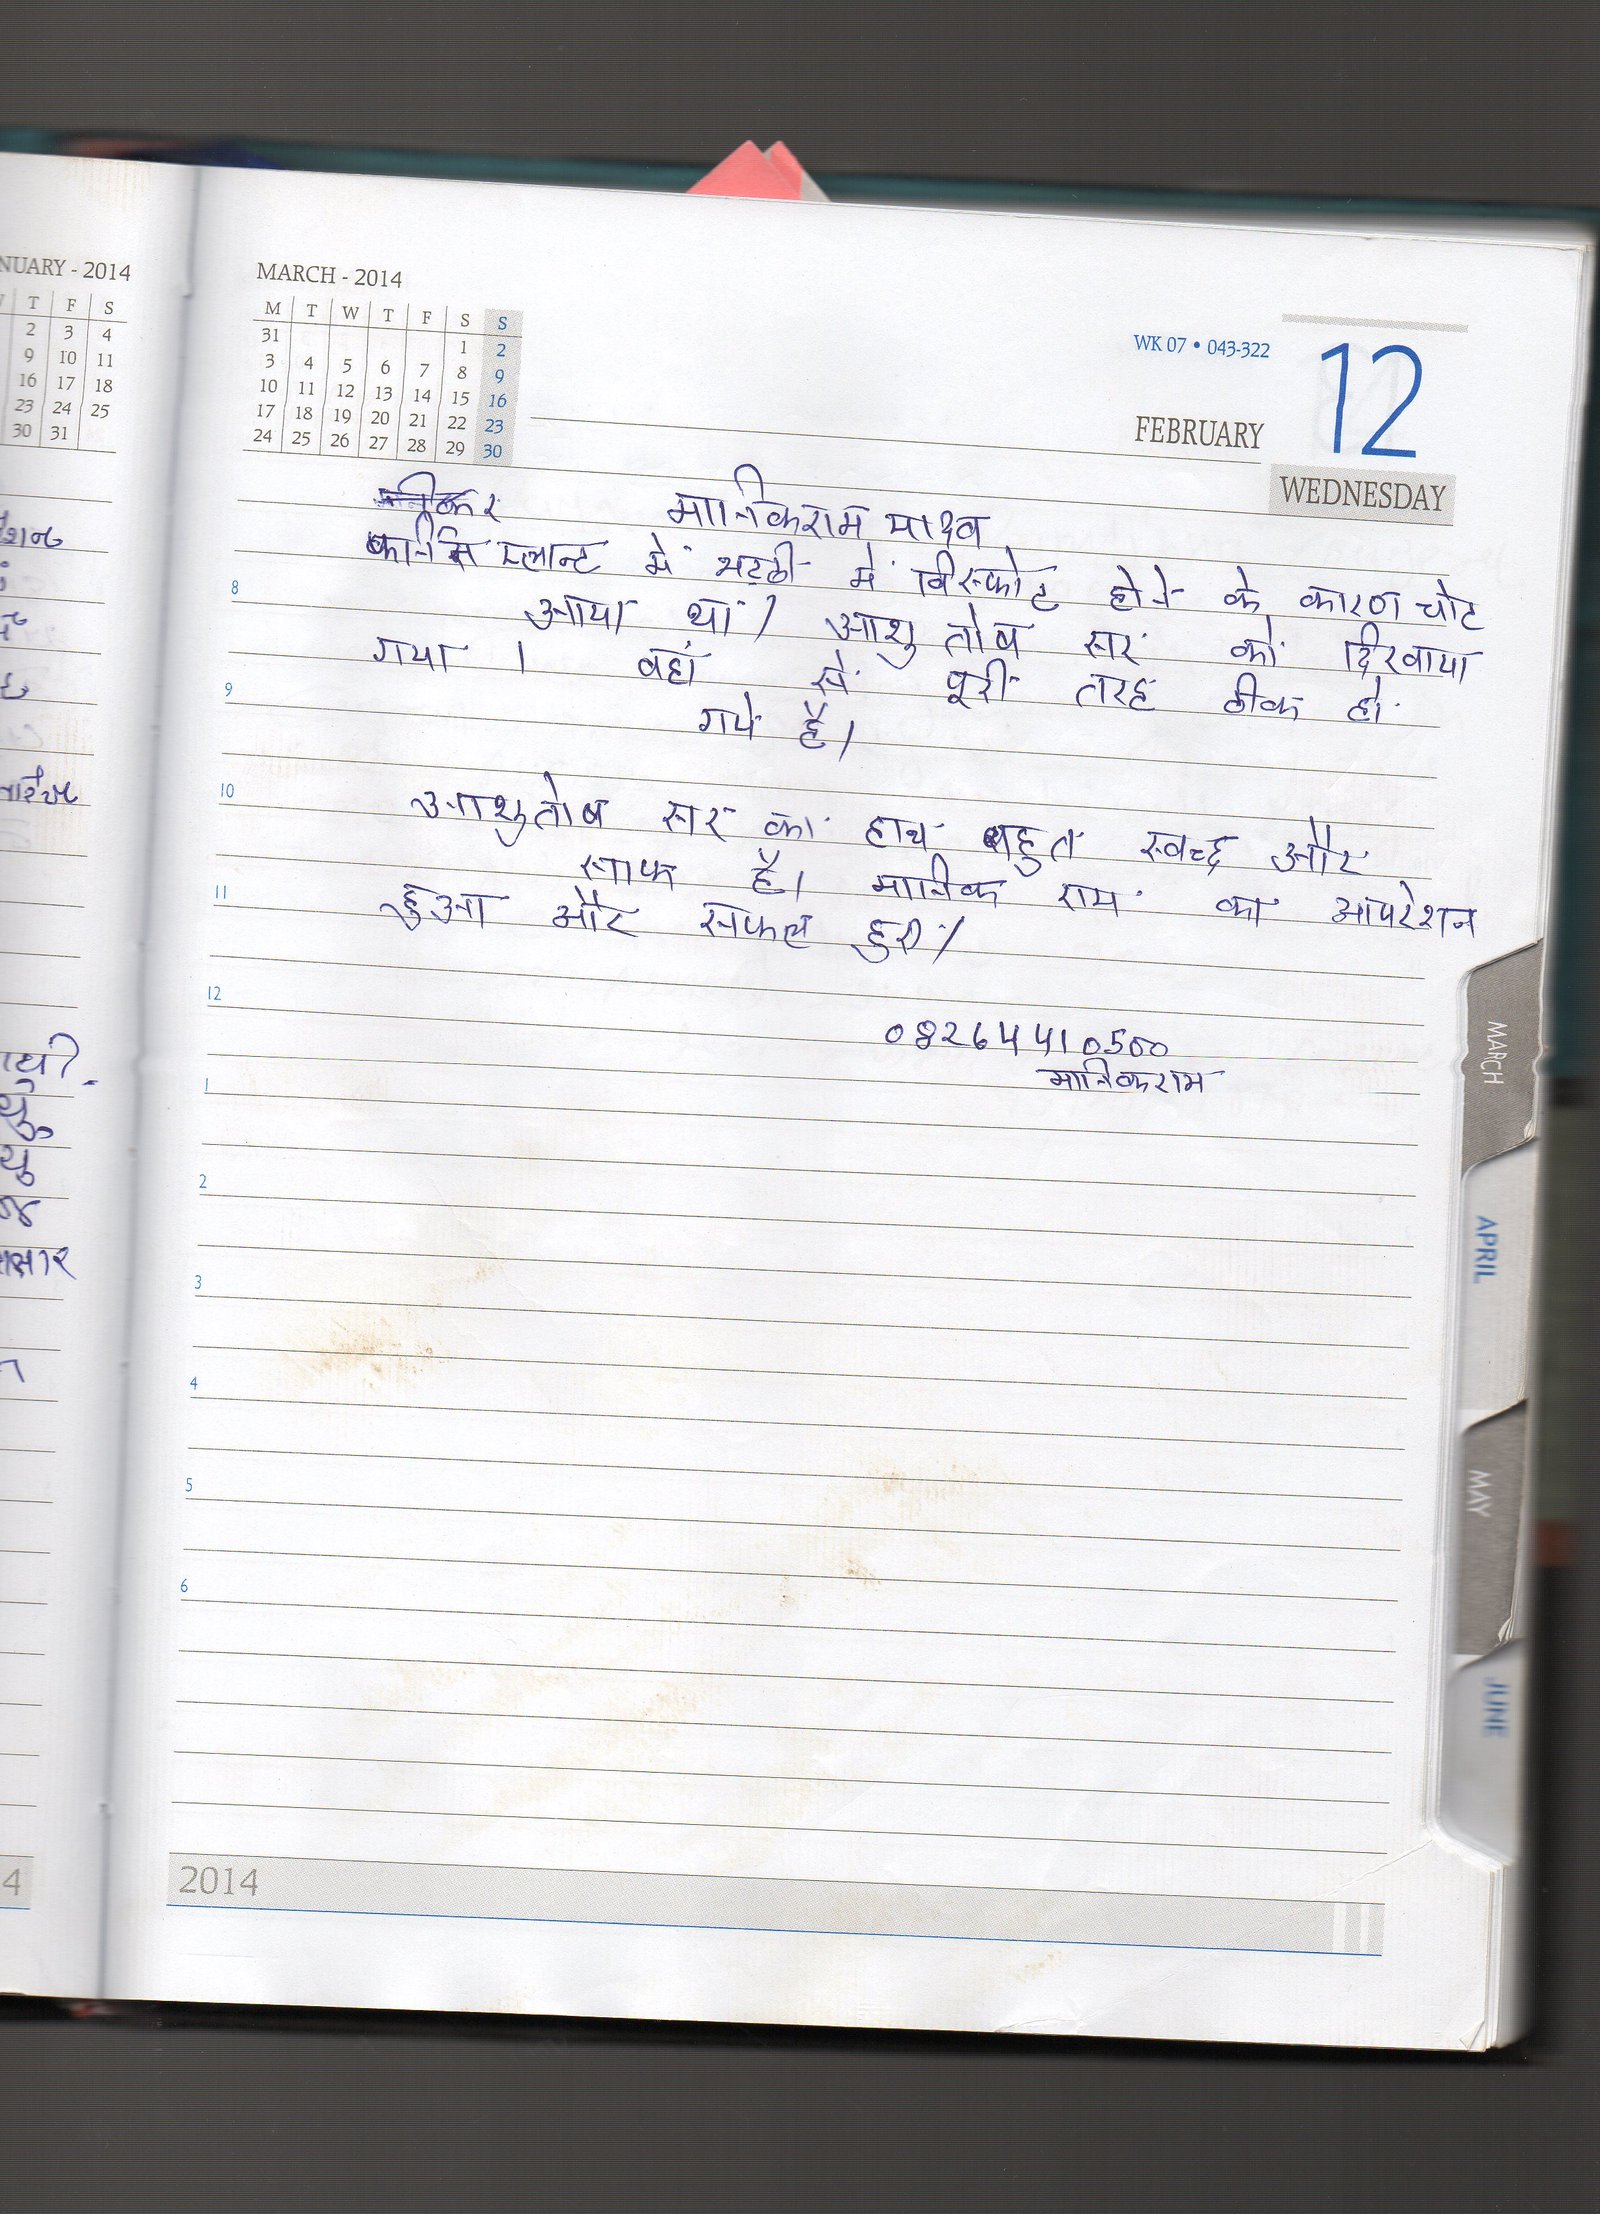 NUARY - 2014
T F S
2 3 4
9 10 11
16 17 18
23 24 25
30 31
MARCH - 2014
M T W T F S S
31 1 2
3 4 5 6 7 8 9
10 11 12 13 14 15 16
17 18 19 20 21 22 23
24 25 26 27 28 29 30
WK 07 • 043-322
12
FEBRUARY
WEDNESDAY
मानिकराम यादव
प्लान्ट में भट्ठी में विस्फोट होने के कारण चोट
8
आया था। आशुतोष सर को दिखाया
गया । वहां से पूरी तरह ठीक हो
9
गये है।
10
आशुतोष सर का हाथ बहुत स्वच्छ और
साफ है। मानिक राम का आपरेशन
11
हुआ और सफल हुए।
12
08264410500
मानिकराम
1
2
3
4
5
6
2014
MARCH
APRIL
MAY
JUNE
4